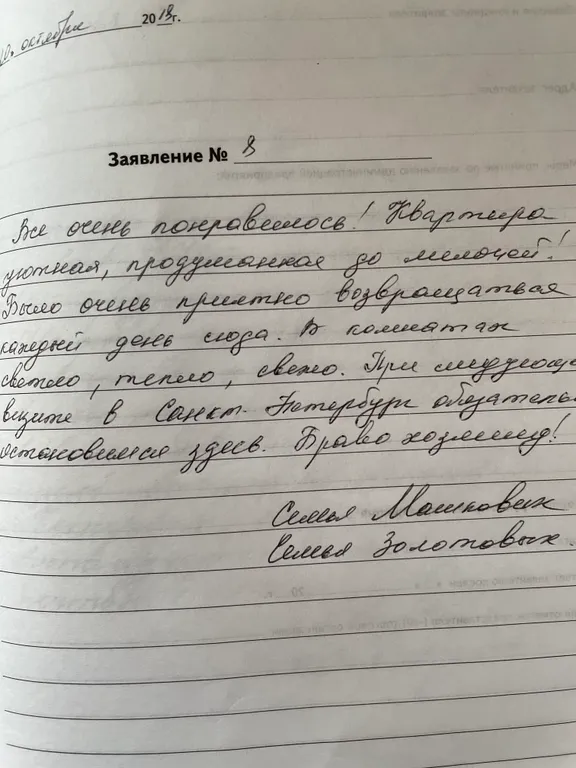 10. октября 2018 г.
Заявление № 8
Все очень понравилось! Квартира
уютная, продуманная до мелочей!
Было очень приятно возвращаться
каждый день сюда. В комнатах
светло, тепло, свежо. При следующ
визите в Санкт-Петербург обязательн
остановимся здесь. Браво хозяину!
Семья Машковых
Семья Золотовых.